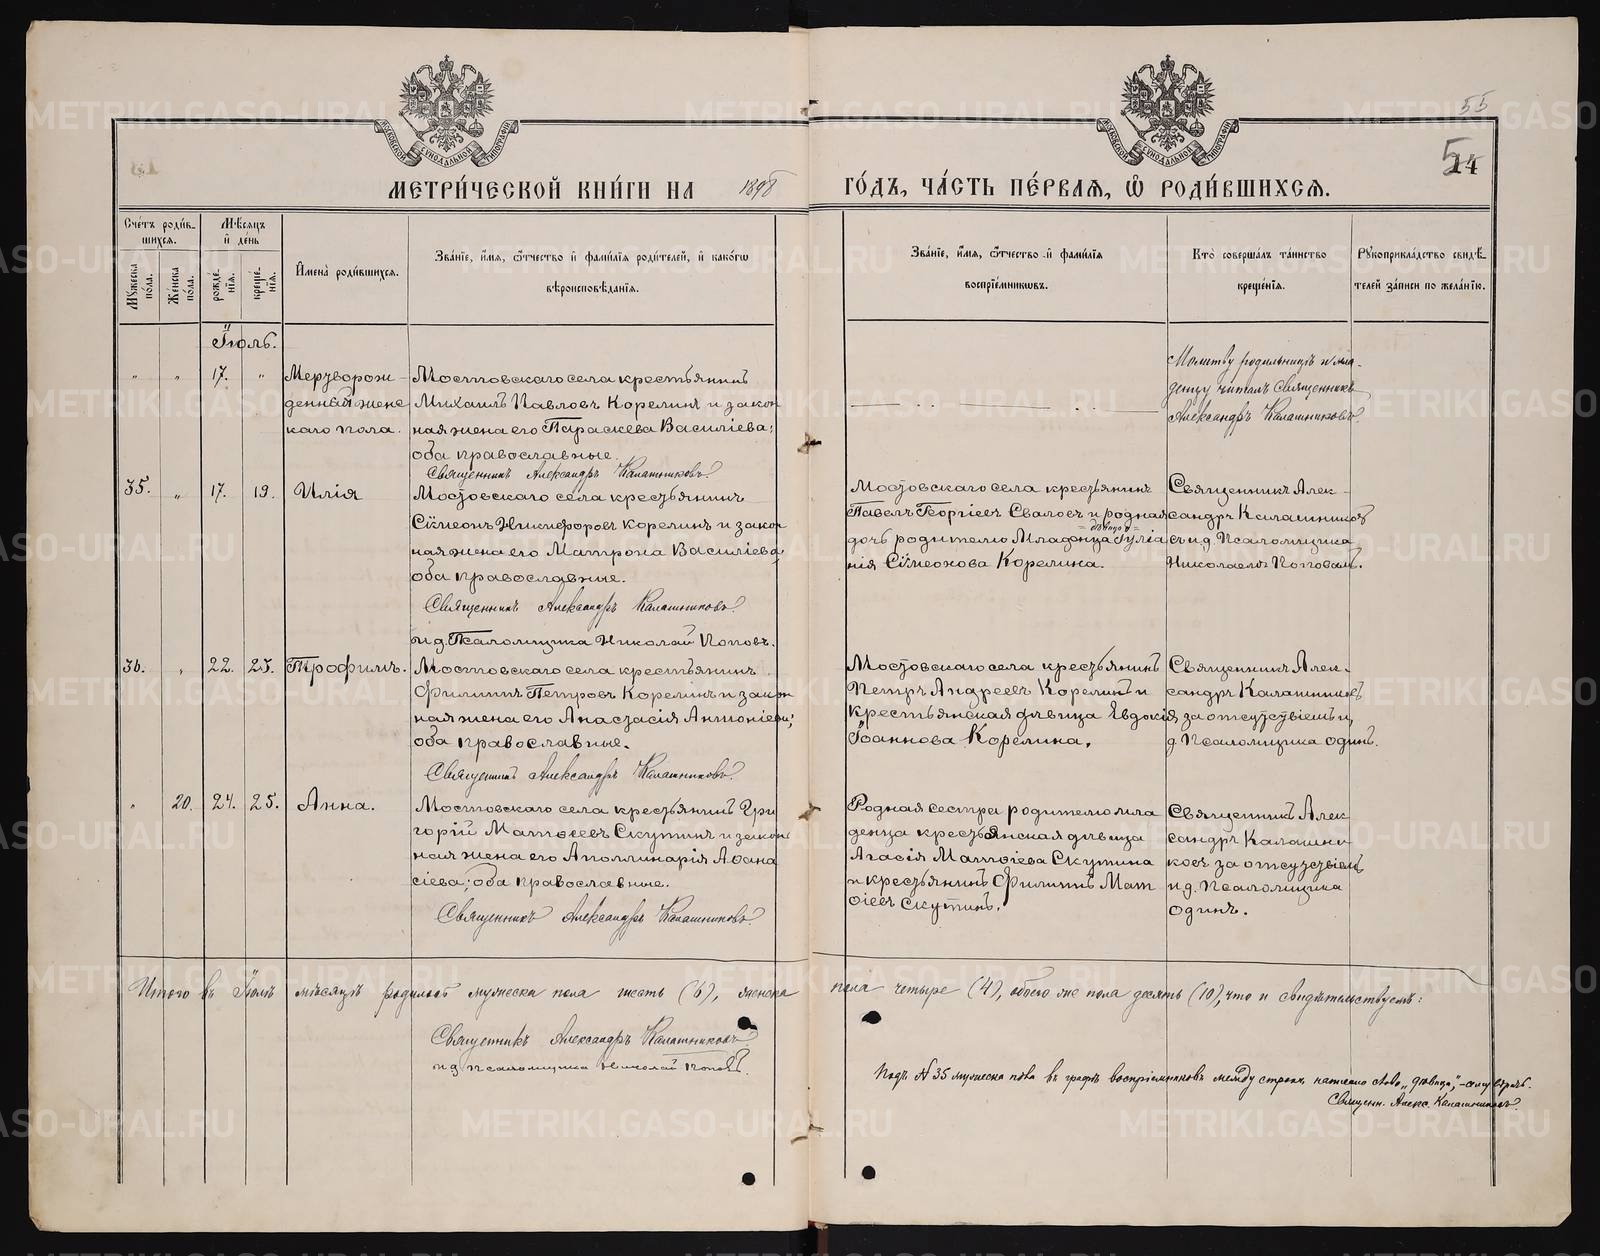 МЕТРИ́ЧЕСКОЙ КНИ́ГИ НА 1898 ГО́ДЪ, ЧА́СТЬ ПЕ́РВАЯ, Ѽ РОДИ́ВШИХСЯ.
55
14
Сче́тъ роди́в-
шихся.
Мѣ́сяцъ
и҆ де́нь
Му́жеска
по́ла.
Же́нска
по́ла.
рожде́-
нїя.
креще́-
нїя.
И҆мена̀ роди́вшихся.
Зва́нїе, и҆́мя, ѻ҆́тчество и҆ фами́лїя роди́телей, и҆ како́гѡ
вѣроисповѣ́данїя.
Зва́нїе, и҆́мя, ѻ҆́тчество и҆ фами́лїя
воспрїе́мникѡвъ.
Кто̀ соверша́лъ та́инство
креще́нїя.
Рꙋкоприкла́дство свидѣ́-
телей за́писи по жела́нїю.
Іюль.
„ „ 17. „
Мертворож-
денный жене
каго пола.
Мостовскаго села крестьянинъ
Михаилъ Павловъ Корелинъ и закон
ная жена его Параскева Василіева;
оба православные.
Священникъ Александръ Калашниковъ.
Молитву родильницѣ и мла-
денцу читалъ Священникъ
Александръ Калашниковъ.
35. „ 17. 19. Илія
Мостовскаго села крестьянинъ
Сѵмеонъ Никифоровъ Корелинъ и закон
ная жена его Матрона Василіева,
оба православные.
Священникъ Александръ Калашниковъ.
и д. Псаломщика Николай Поповъ.
Мостовскаго села крестьянинъ
Павелъ Георгіевъ Сваловъ и родная
= дѣвица =
дочь родителю младенца Іуліа
нія Сѵмеонова Корелина.
Священникъ Алек-
сандръ Калашниковъ
съ и.д. Псаломщика
Николаемъ Поповымъ.
36. „ 22. 23. Трофимъ.
Мостовскаго села крестьянинъ
Филиппъ Петровъ Корелинъ и закон
ная жена его Анастасія Антоніева;
оба православные.
Священникъ Александръ Калашниковъ.
Мостовскаго села крестьянинъ
Петръ Андреевъ Корелинъ и
крестьянская дѣвица Евдокія
Іоаннова Корелина.
Священникъ Алек-
сандръ Калашниковъ
за отсутствіемъ и,
д. Псаломщика одинъ.
„ 20. 24. 25. Анна.
Мостовскаго села крестьянинъ Гри
горій Матѳеевъ Скутинъ и закон
ная жена его Аполлинарія Аѳана
сіева; оба православные.
Священникъ Александръ Калашниковъ.
Родная сестра родителю мла
денца крестьянская дѣвица
Агаѳія Матѳіева Скутина
и крестьянинъ Филиппъ Мат
ѳіевъ Скутинъ.
Священникъ Алек
сандръ Калашни
ковъ за отсутствіемъ
и д. Псаломщика
одинъ.
Итого въ Іюлѣ мѣсяцѣ родилось мужеска пола шесть (6), женска пола четыре (4), обоего же пола десять (10), что и свидѣтельствуемъ:
Священникъ Александръ Калашниковъ
и д. псаломщика Николай Поповъ.
Подъ № 35 мужеска пола въ графѣ воспріемниковъ между строкъ написано слово „дѣвица",
Священ. Алекс. Калашниковъ.